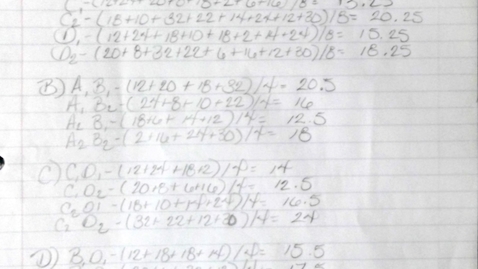 C₂ - (18+10+32+22+14+24+12+30)/8 = 20.25
D₁ - (12+24+18+10+18+2+14+24)/8 = 15.25
D₂ - (20+8+32+22+6+16+12+30)/8 = 18.25
B) A₁ B₁ - (12+20+18+32)/4 = 20.5
A₁ B₂ - (24+8+10+22)/4 = 16
A₂ B₁ - (18+6+14+12)/4 = 12.5
A₂ B₂ - (2+16+24+30)/4 = 18
C) C₁ D₁ - (12+24+18+2)/4 = 14
C₁ D₂ - (20+8+6+16)/4 = 12.5
C₂ D1 - (18+10+14+24)/4 = 16.5
C₂ D₂ - (32+22+12+30)/4 = 24
D) B₁ D₁ - (12+18+18+14)/4 = 15.5